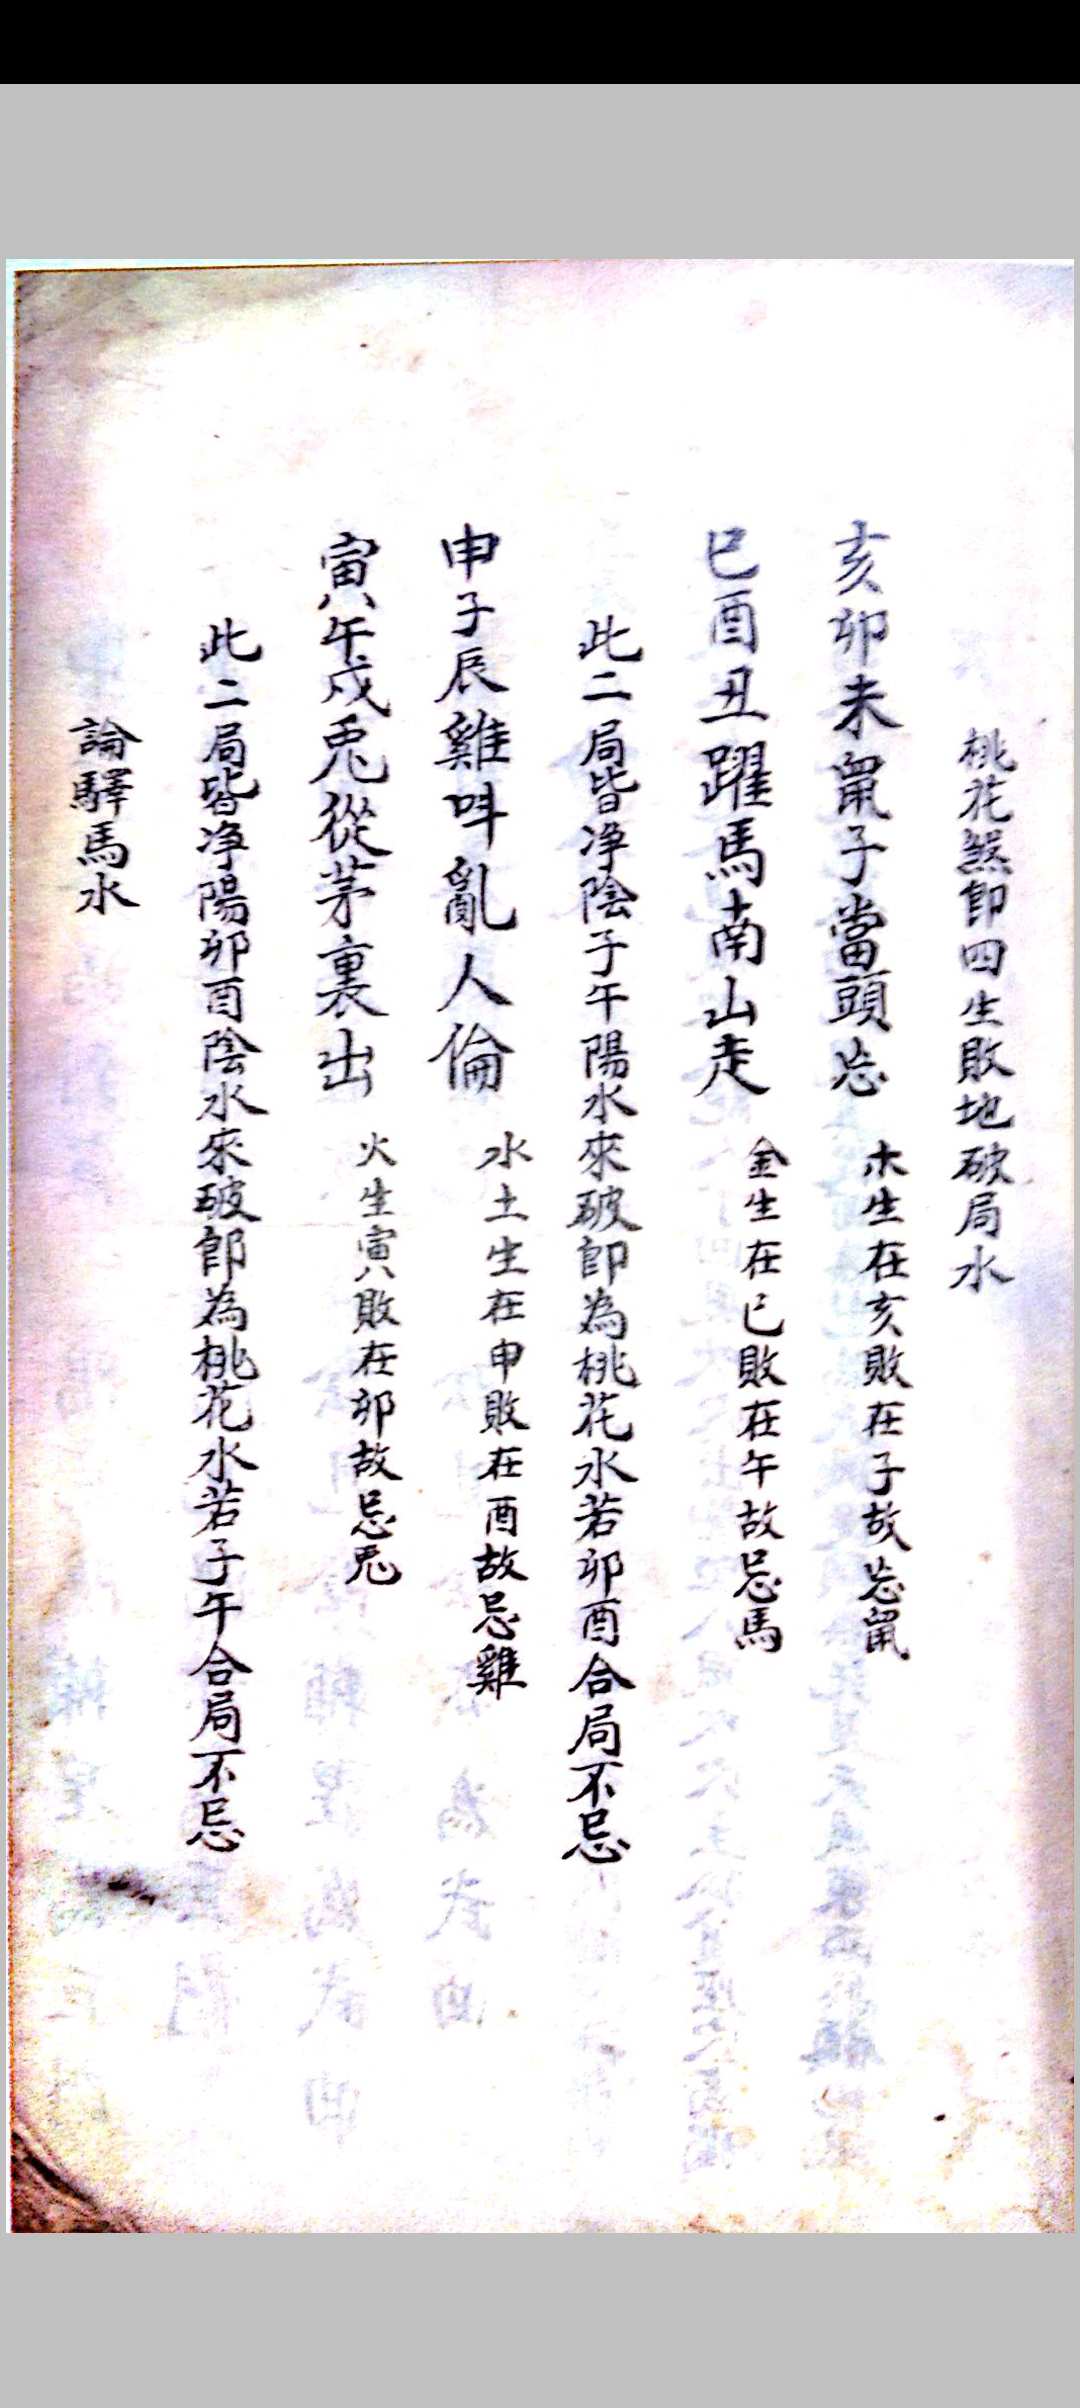 桃花煞即四生敗地破局水
亥卯未鼠子當頭忌 木生在亥敗在子故忌鼠
巳酉丑躍馬南山走 金生在巳敗在午故忌馬
此二局皆净陰子午陽水來破即為桃花水若卯酉合局不忌
申子辰雞叫亂人倫 水土生在申敗在酉故忌雞
寅午戌兎從茅裏出 火生寅敗在卯故忌兎
此二局皆净陽卯酉陰水來破即為桃花水若子午合局不忌
論驛馬水